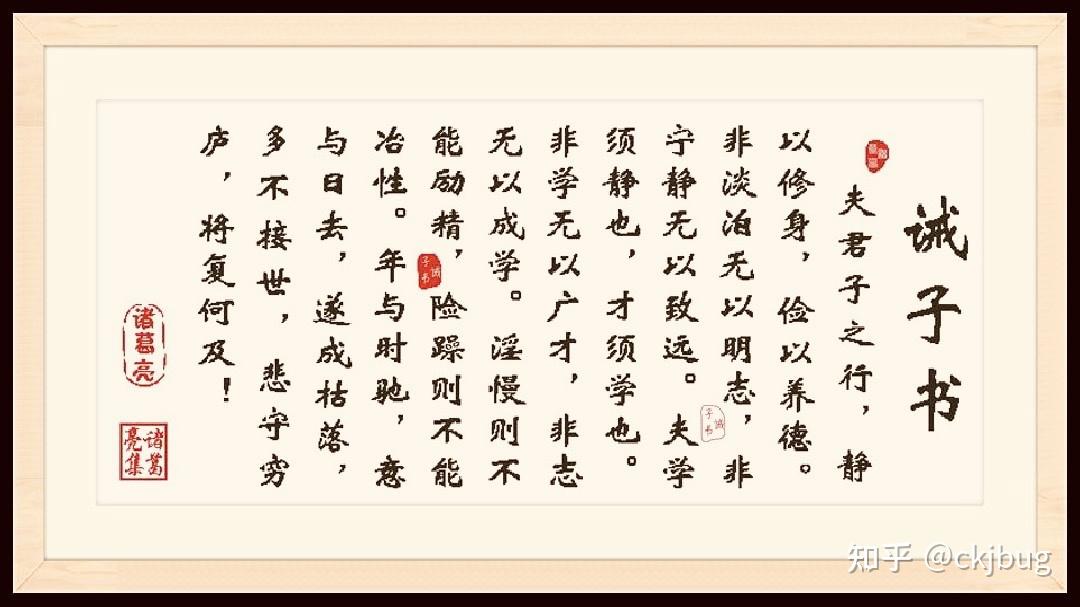 诫子书
夫君子之行，静
以修身，俭以养德。
非淡泊无以明志，非
宁静无以致远。夫学
须静也，才须学也。
非学无以广才，非志
无以成学。淫慢则不
能励精，险躁则不能
冶性。年与时驰，意
与日去，遂成枯落，
多不接世，悲守穷
庐，将复何及！
诫子书
诫子书
诸葛亮
诸葛亮集
知乎 @ckjbug